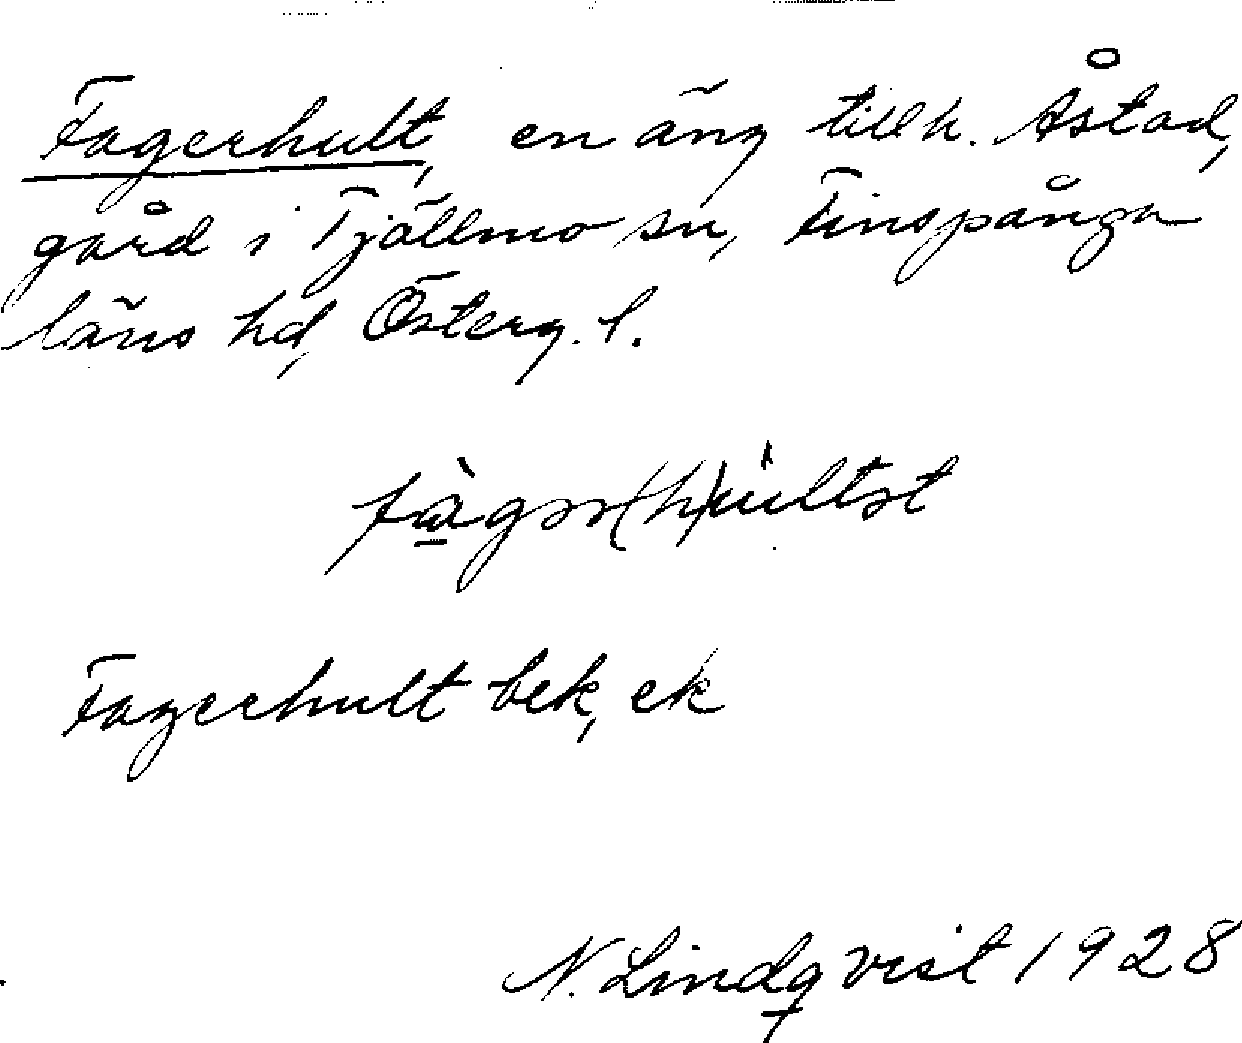 Fagerhult, en äng tillh. Åstad,
gård i Tjällmo sn, Finspånga
läns hd, Österg. l.
Fagerhult bek, ek
N. Lindqvist 1928